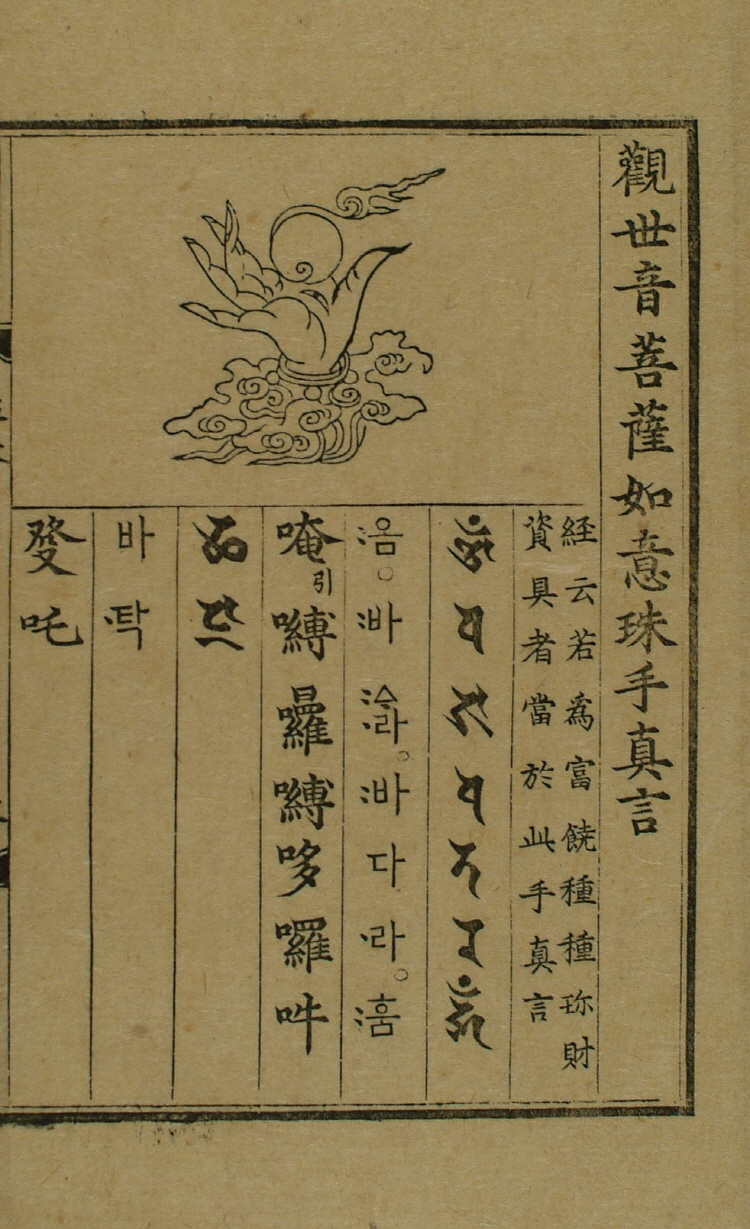 觀世音菩薩如意珠手真言
経云若為富饒種種珎財
資具者當於此手真言
옴。바ᅀᅳ라。바다라。훔
唵引嚩日囉嚩哆囉吽
바탁
癹吒